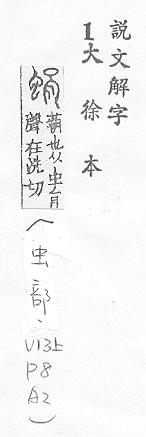 說文解字
1大徐本
蜎
也从虫肙
聲在沇切
(虫部、V13上
P8
A2)